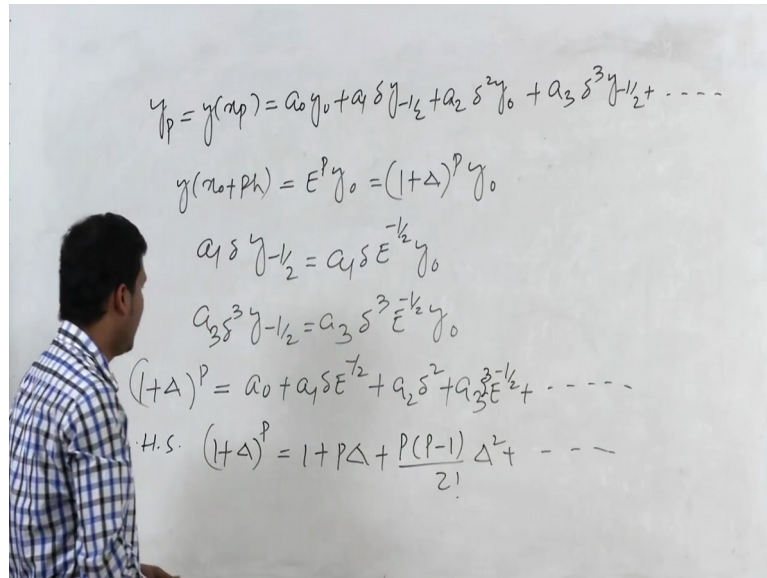 y_p = y(x_p) = a_0 y_0 + a_1 δ y_{-1/2} + a_2 δ^2 y_0 + a_3 δ^3 y_{-1/2} + ----
y(x_0+Ph) = E^P y_0 = (1+Δ)^P y_0
a_1 δ y_{-1/2} = a_1 δ E^{-1/2} y_0
a_3 δ^3 y_{-1/2} = a_3 δ^3 E^{-1/2} y_0
(1+Δ)^P = a_0 + a_1 δ E^{-1/2} + a_2 δ^2 + a_3 δ^3 E^{-1/2} + -----
.H.S. (1+Δ)^P = 1 + PΔ + \frac{P(P-1)}{2!} Δ^2 + ----